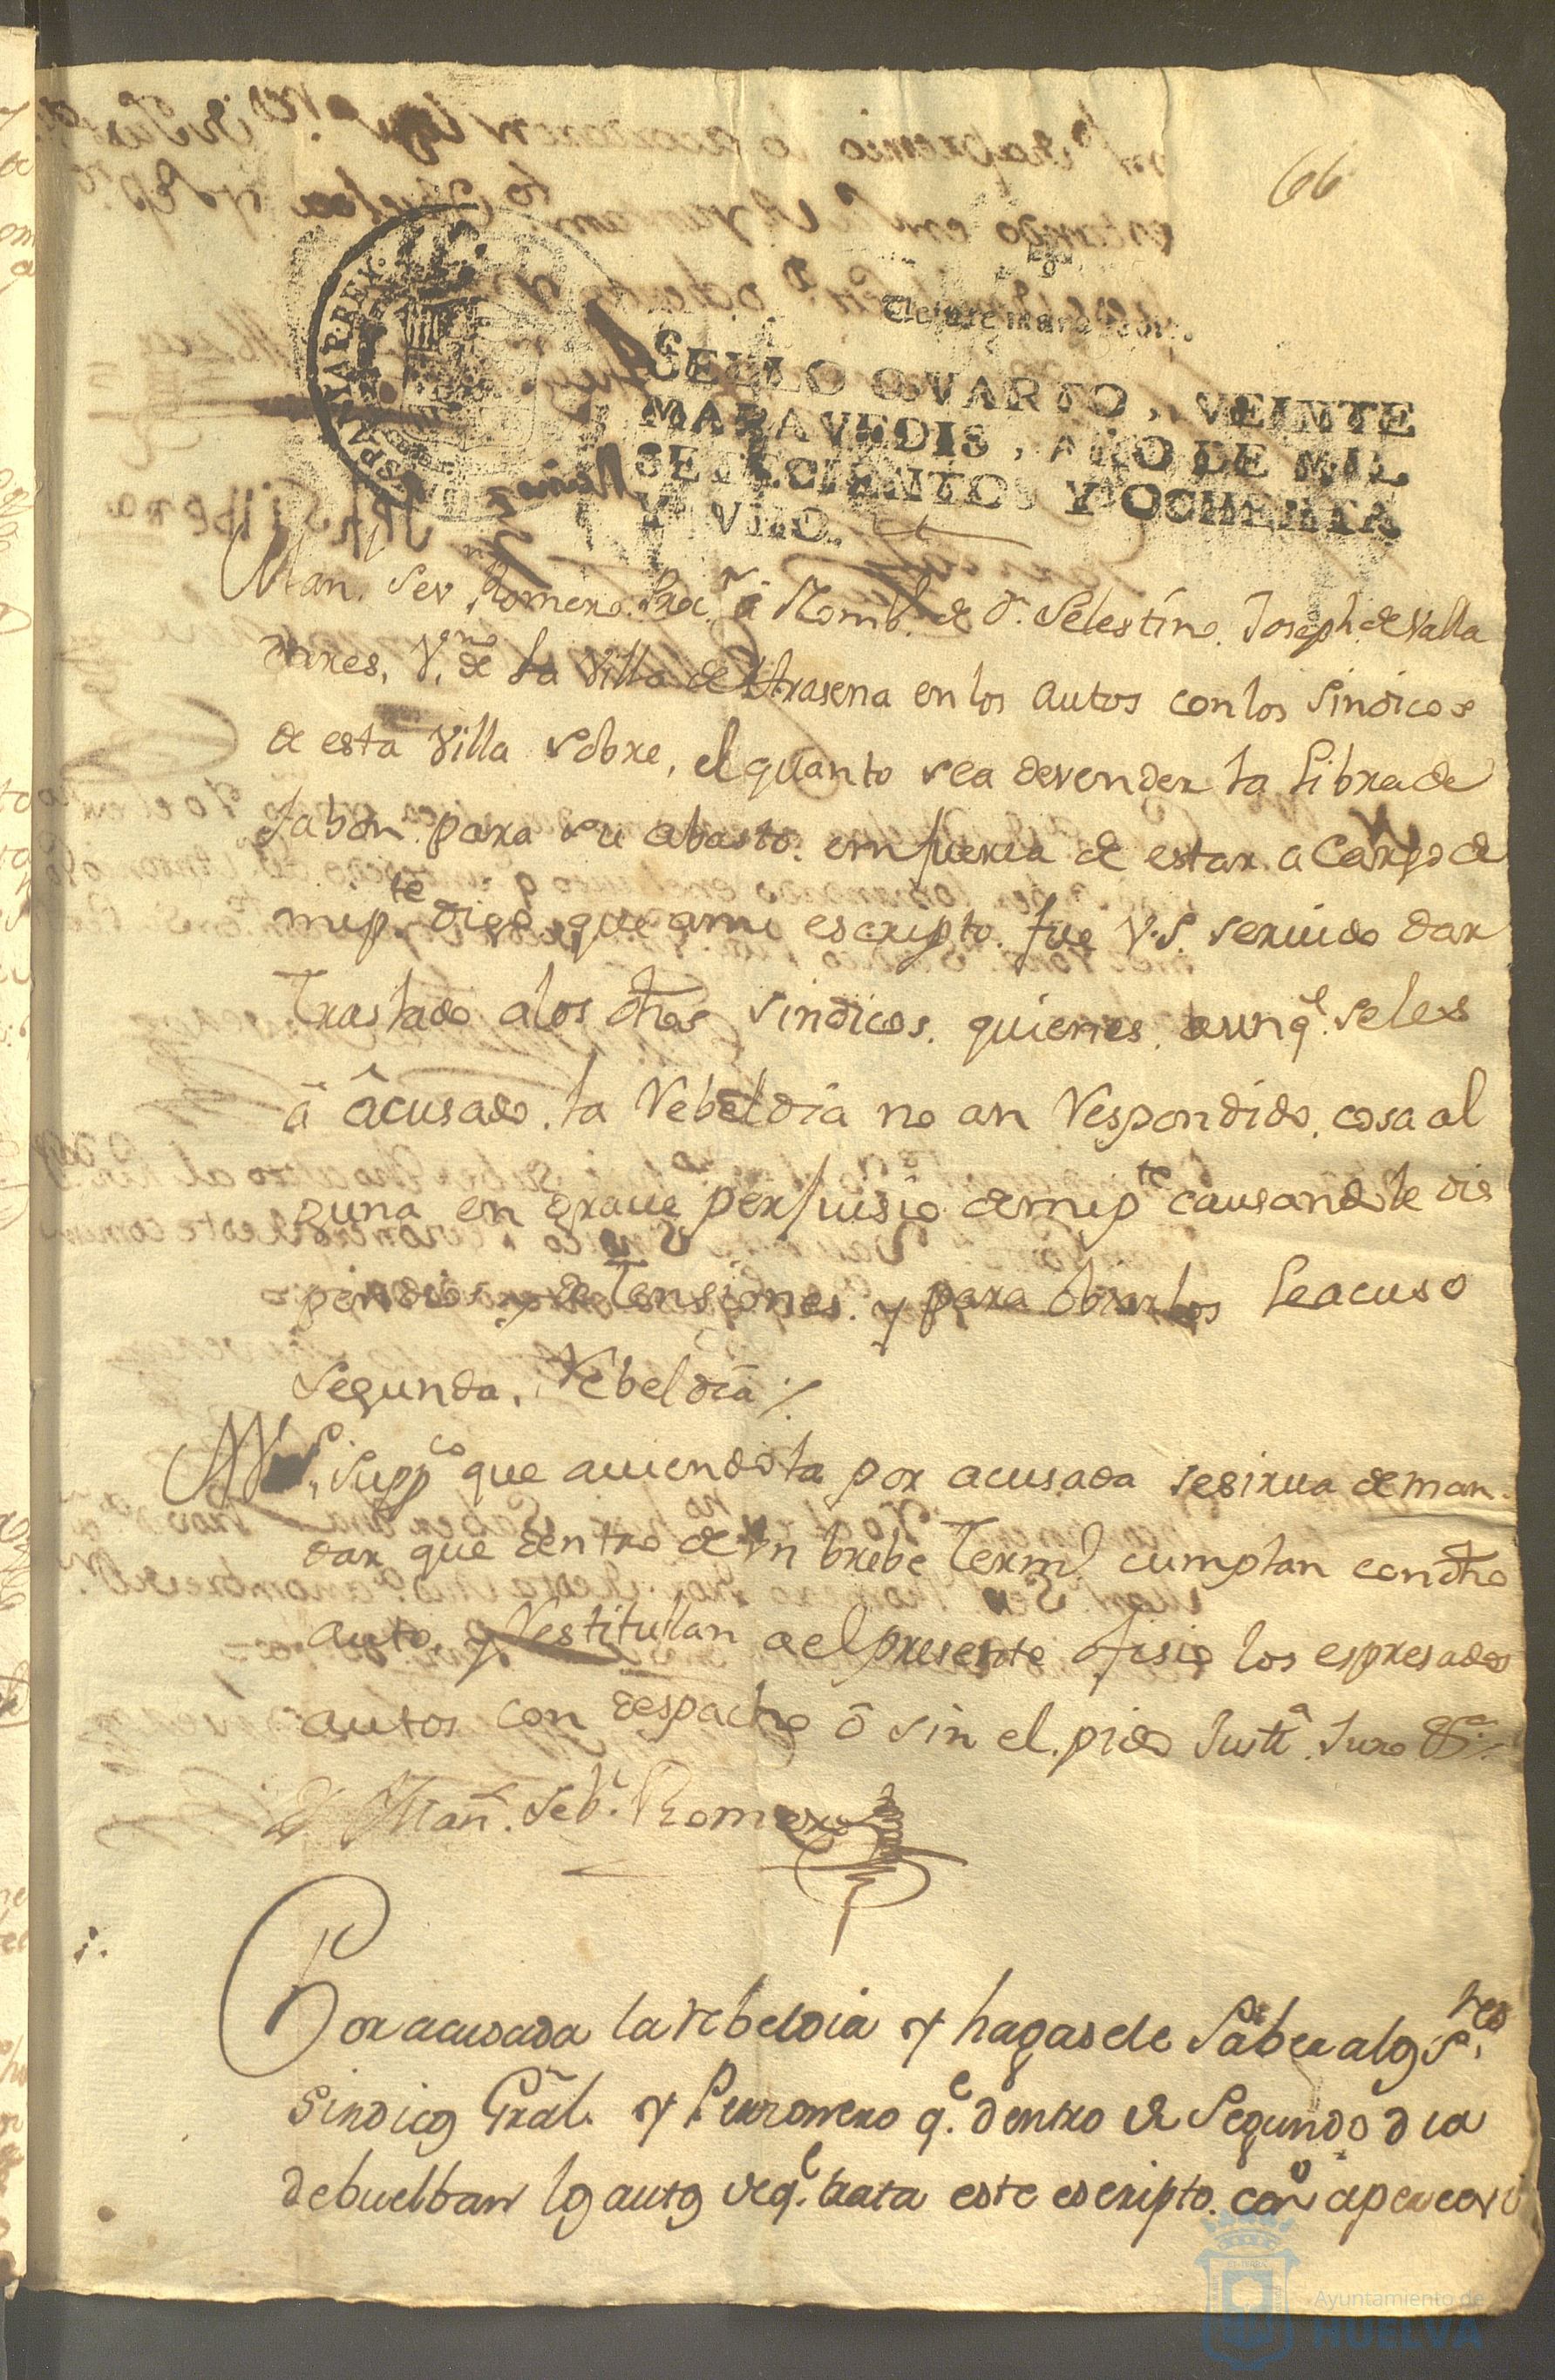 66
Veinte maravedis.
SELLO QVARTO, VEINTE
MARAVEDIS, AÑO DE MIL
SETECIENTOS Y OCHENTA
Y VNO.
Man.l Sev.no Romero Proc.r â Nomb.e de D.n Selestino Joseph de Valla
dares, V.no de la Villa de Arasena en los autos con los Sindicos
de esta Villa sobre, el quanto sea de vender la Libra de
Jabon para su abasto en fuerza de estar a Cargo de
mi p.te digo que a mi escripto fue V.S. seruido dar
Traslado a los dhos Sindicos. quienes aunq.e se les
â âcusado la Rebeldia no an Respondido cosa al
guna en graue perjuisio de mi p.te causandole dis
pendios y detensiones y para obiarlos le acuso
Segunda, Rebeldia %
A V.S. Supp.co que auiendola por acusada se sirua de man
dar que dentro de Vn brebe Term.o cumplan con dho
auto y Restitullan a el presente ofisio los espresados
autos con despacho ô sin el pido Just.a Juro &.a
Man.l Seb.no Romero
Por acusada la rebeldia y hagasele Saber a los S.res
Sindicos Gral. y Personero q.e dentro de Segundo dia
debuelban los autos de q.e trata este escripto con apercevi
Ayuntamiento de
HUELVA